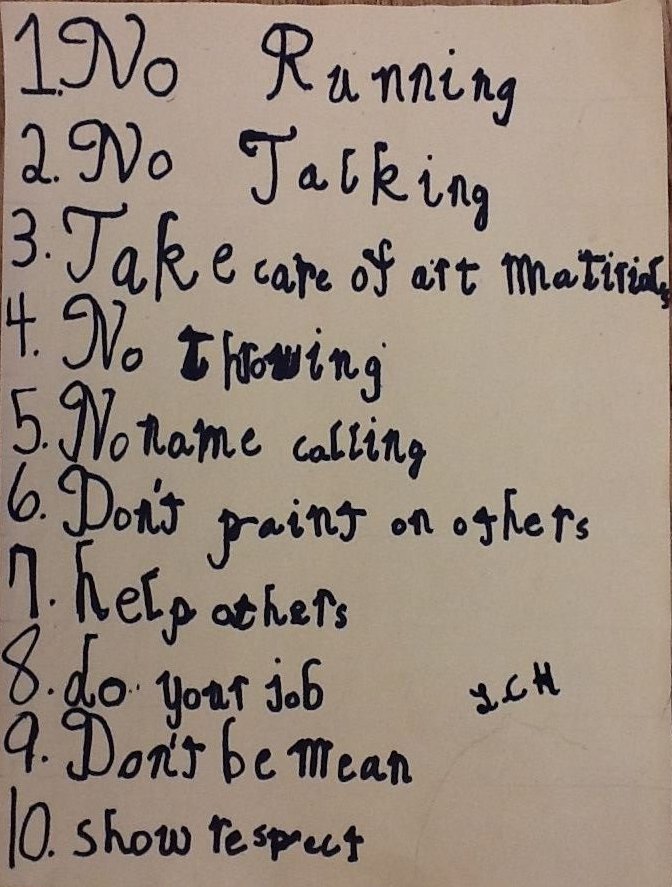 1. No Running
2. No Talking
3. Take care of art matirials
4. No throwing
5. No name calling
6. Don't paint on others
7. help others
8. do your job
9. Don't be mean
10. show respect